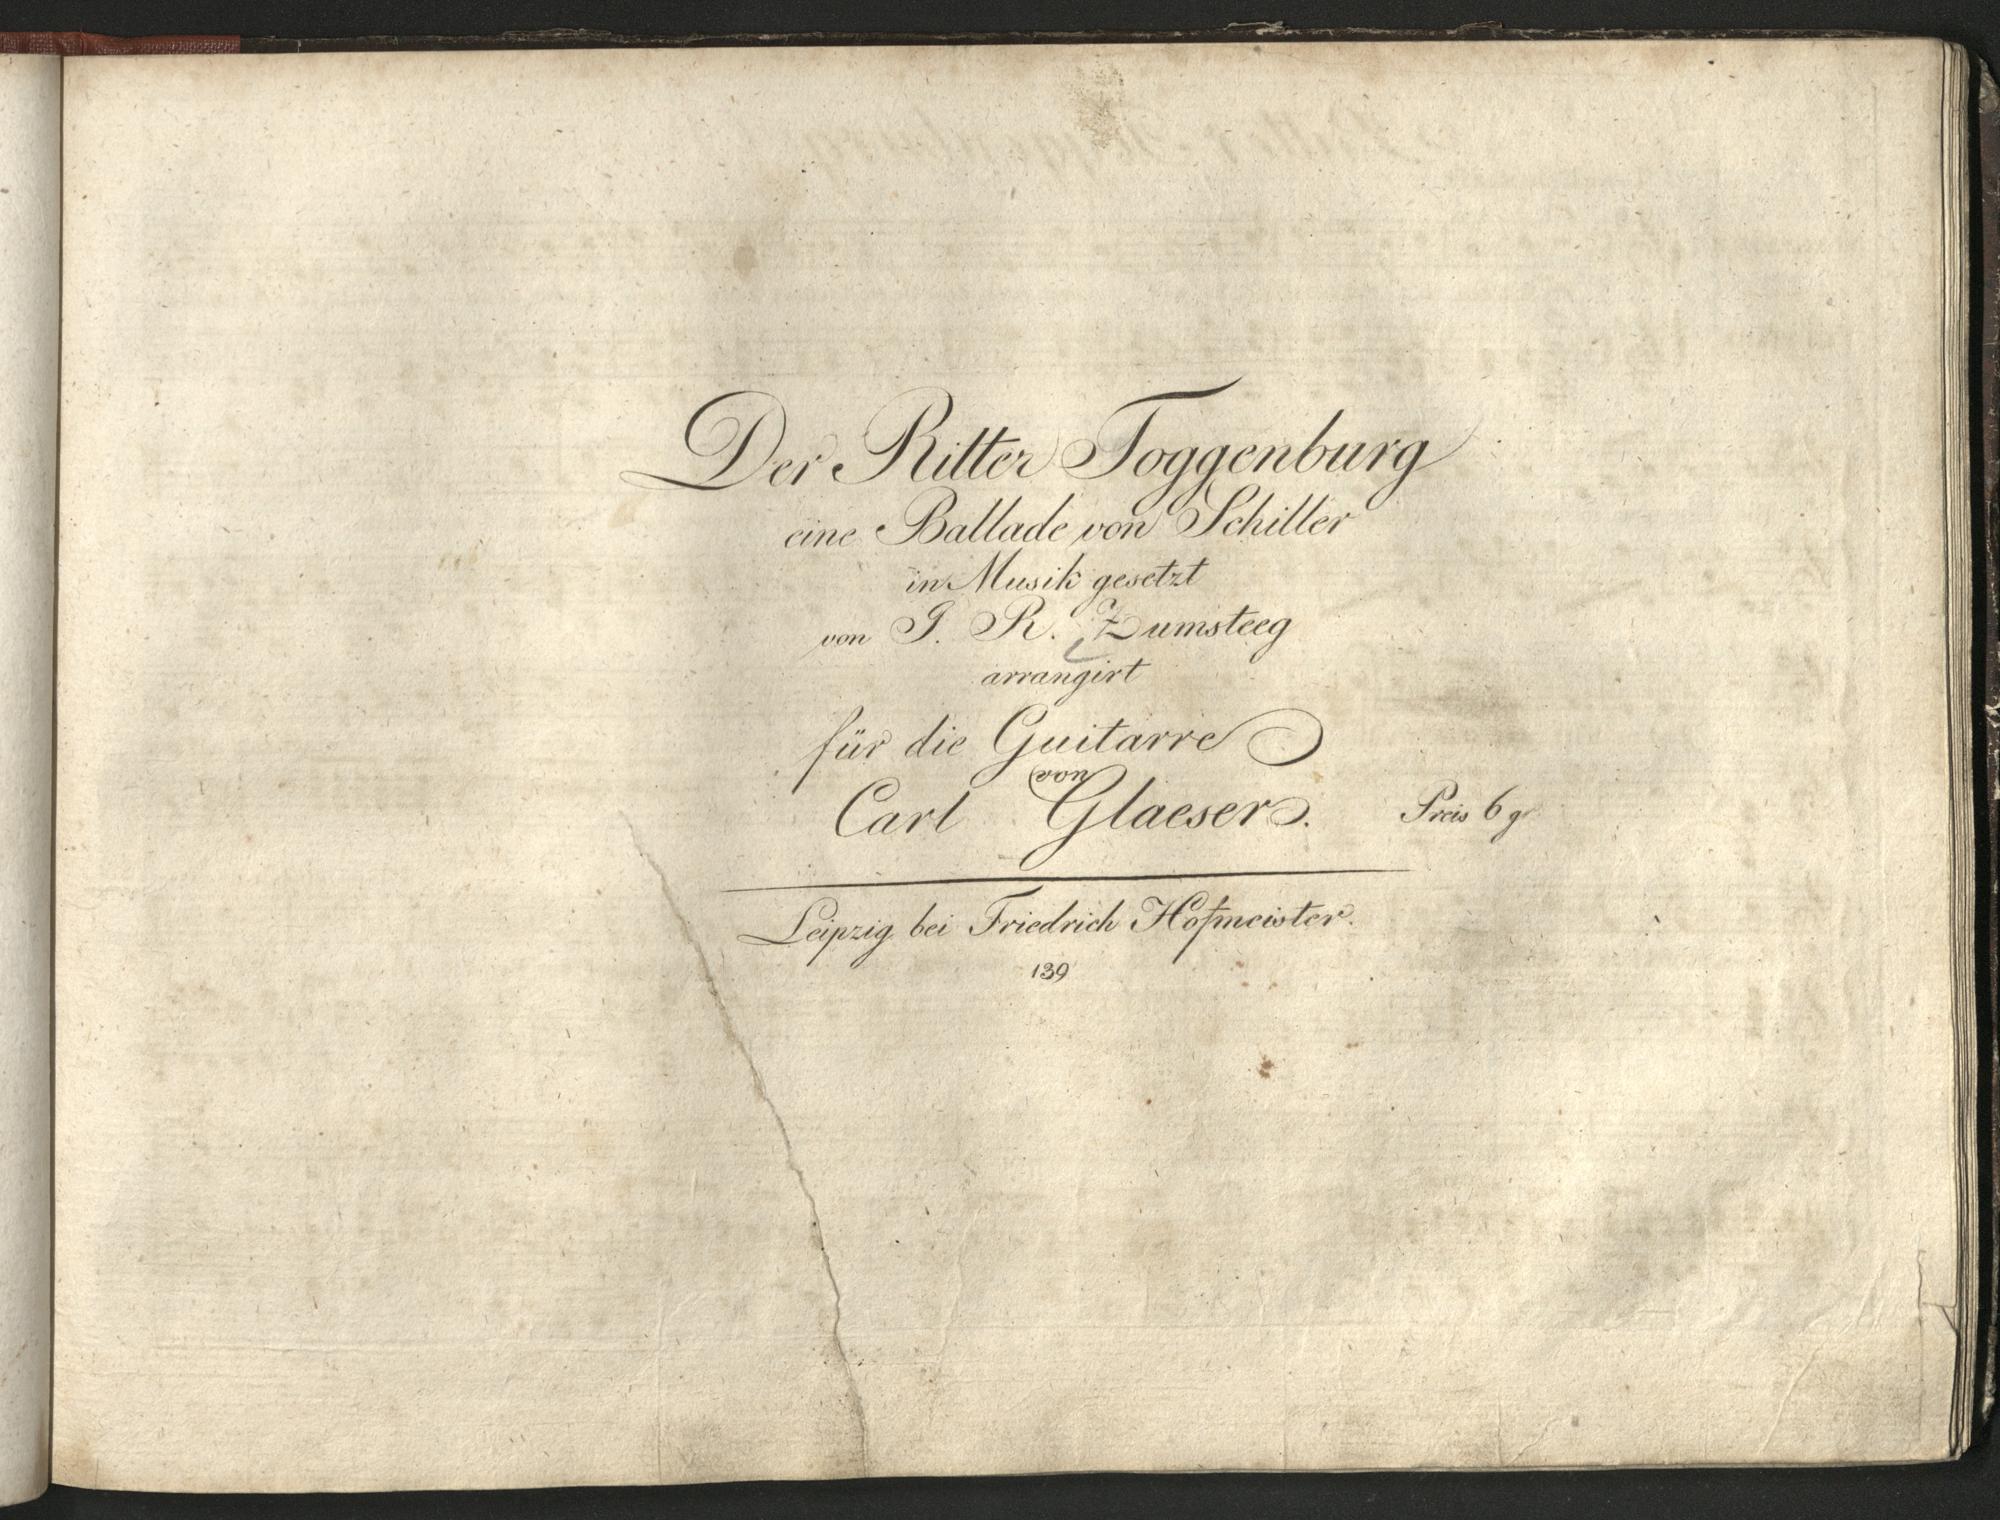 Der Ritter Toggenburg
eine Ballade von Schiller
in Musik gesetzt
von J. R. Zumsteeg
arrangirt
für die Guitarre
von
Carl Glaeser.
Preis 6 gr
Leipzig bei Friedrich Hofmeister.
139